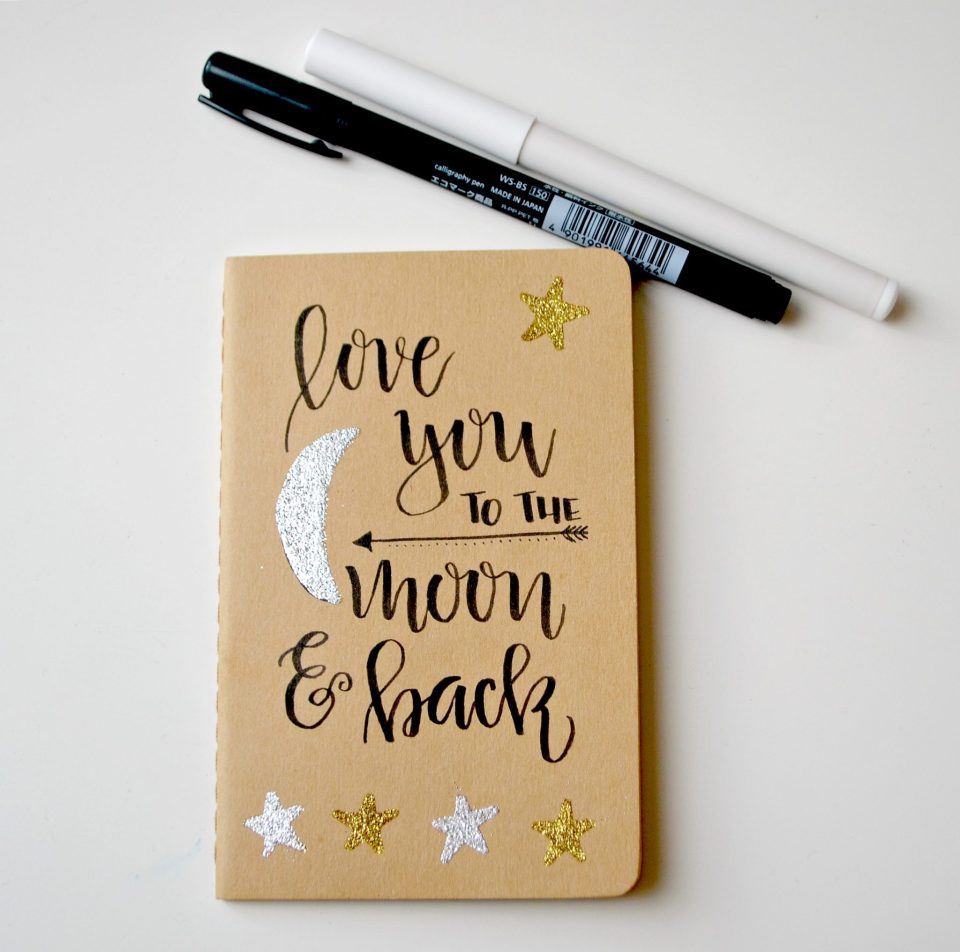 calligraphy pen WS-BS 150
エコマーク商品 MADE IN JAPAN
love
you
TO THE
moon
& back